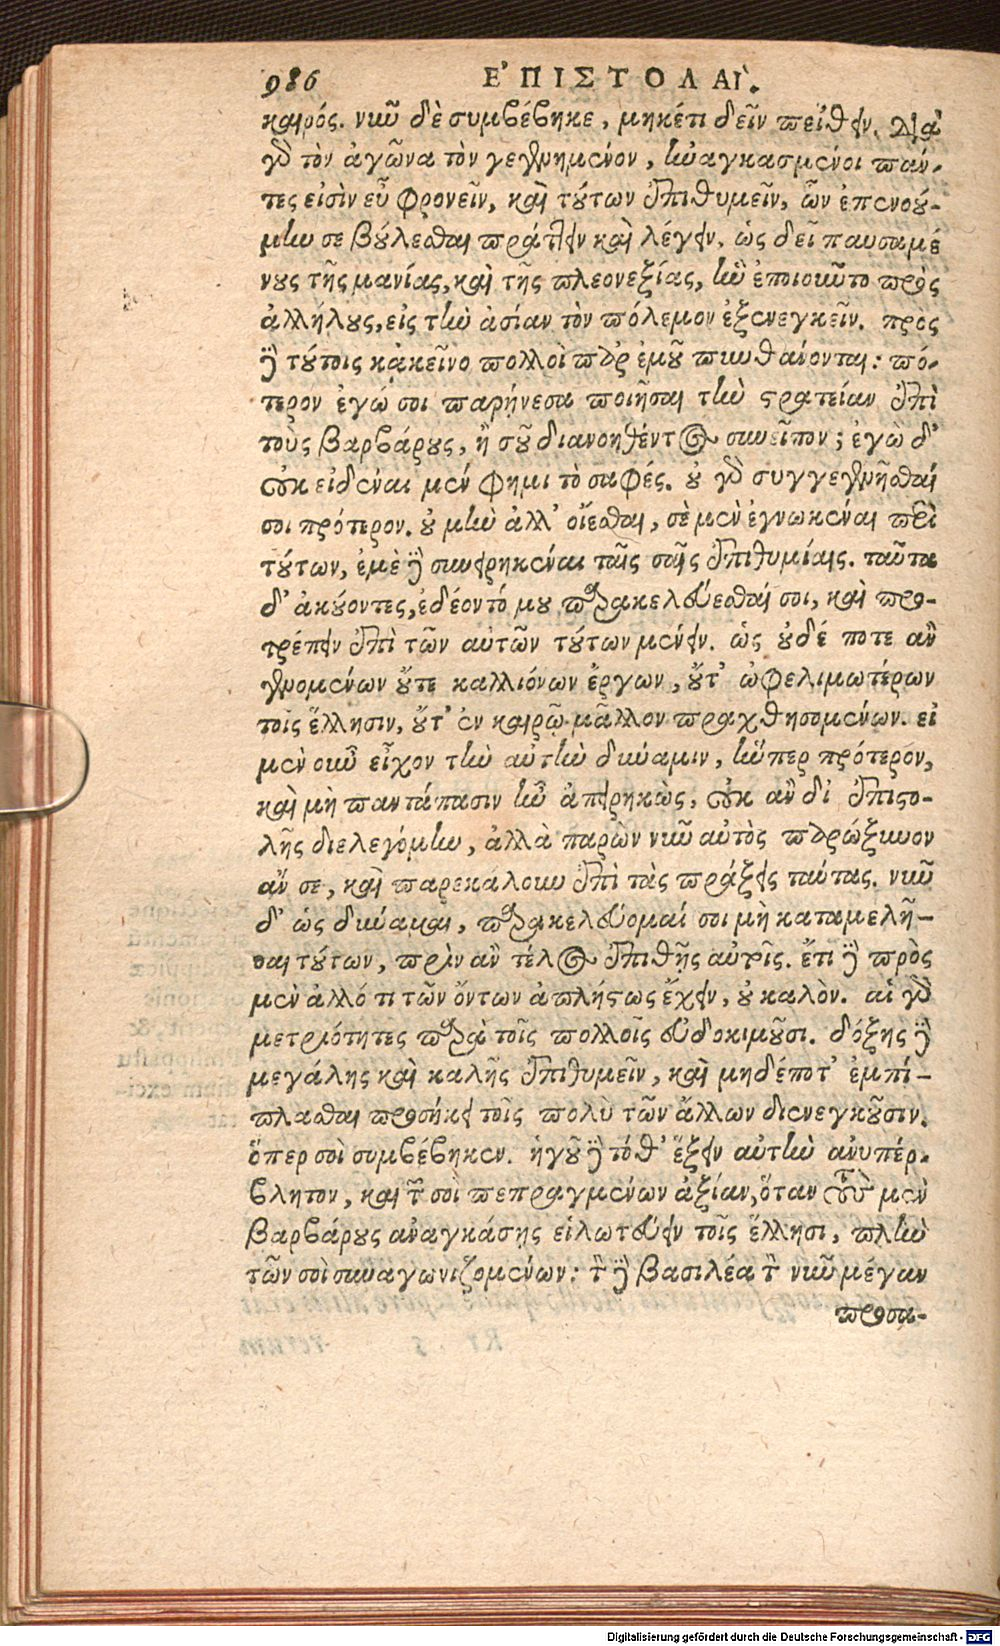 986 ΕʼΠΙΣΤΟΛΑῚ.
καιρός. νιῦ δὲ συμβέβηκε, μηκέτι δεῖν πείθειν. διὰ
γὸ τὸν ἀγῶνα τὸν γεγενημένον, ἠναγκασμένοι πάν-
τες εἰσὶν εὖ φρονεῖν, καὶ τούτων ἐπιθυμεῖν, ὧν ἐπενοού-
μην σε βούλεσθαι πράττειν καὶ λέγειν, ὡς δεῖ παυσαμέ
νους τῆς μανίας, καὶ τῆς πλεονεξίας, ἣν ἐποιοῦντο πρὸς
ἀλλήλους, εἰς τὴν ἀσίαν τὸν πόλεμον ἐξενεγκεῖν. πρὸς
δὲ τούτοις κἀκεῖνο πολλοὶ παρ' ἐμοῦ πυνθάνονται: πό-
τερον ἐγώ σοι παρῄνεσα ποιῆσαι τὴν στρατείαν ἐπὶ
τοὺς βαρβάρους, ἢ σοῦ διανοηθέντος συνεῖπον; ἐγὼ δ'
οὐκ εἰδέναι μέν φημι τὸ σαφές. οὐ γὰρ συγγεγενῆσθαί
σοι πρότερον. οὐ μὴν ἀλλ' οἴεσθαι, σὲ μὲν ἐγνωκέναι περὶ
τούτων, ἐμὲ δὲ συνειρηκέναι ταῖς σαῖς ἐπιθυμίαις. ταῦτα
δ' ἀκούοντες, ἐδέοντό μου παρακελεύεσθαί σοι, καὶ προ-
τρέπειν ἐπὶ τῶν αὐτῶν τούτων μένειν. ὡς οὐδέ ποτε ἂν
γενομένων οὔτε καλλιόνων ἔργων, οὔτ' ὠφελιμωτέρων
τοῖς ἕλλησιν, οὔτ' ἐν καιρῷ μᾶλλον πραχθησομένων. εἰ
μὲν οὖν εἶχον τὴν αὐτὴν δύναμιν, ἥνπερ πρότερον,
καὶ μὴ παντάπασιν ἦν ἀπειρηκὼς, οὐκ ἂν δι' ἐπιστο-
λῆς διελεγόμην, ἀλλὰ παρὼν νῦν αὐτὸς παρώξυνον
ἄν σε, καὶ παρεκάλουν ἐπὶ τὰς πράξεις ταύτας. νῦν
δ' ὡς δύναμαι, παρακελεύομαί σοι μὴ καταμελῆ-
σαι τούτων, πρὶν ἂν τέλος ἐπιθῇς αὐτοῖς. ἔτι δὲ πρὸς
μὲν ἄλλό τι τῶν ὄντων ἀπλήστως ἔχειν, οὐ καλὸν. αἱ γὰρ
μετριότητες παρὰ τοῖς πολλοῖς εὐδοκιμοῦσι. δόξης δὲ
μεγάλης καὶ καλῆς ἐπιθυμεῖν, καὶ μηδέποτ' ἐμπί-
πλασθαι προσήκει τοῖς πολὺ τῶν ἄλλων διενεγκοῦσιν.
ὅπερ σοὶ συμβέβηκεν. ἡγοῦ δὲ τόθ' ἕξειν αὐτὴν ἀνυπέρ-
βλητον, καὶ τῶν σοὶ πεπραγμένων ἀξίαν, ὅταν τοὺς μὲν
βαρβάρους ἀναγκάσῃς εἱλωτεύειν τοῖς ἕλλησι, πλὴν
τῶν σοὶ συναγωνιζομένων: τὸν δὲ βασιλέα τὸν νῦν μέγαν
προσα-
Digitalisierung gefördert durch die Deutsche Forschungsgemeinschaft - DFG